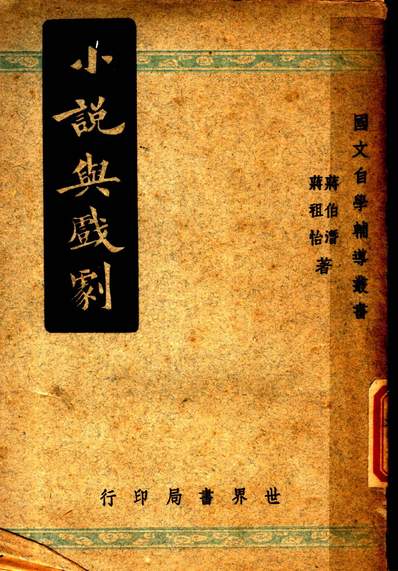 國文自學輔導叢書
蔣伯潛
蔣祖怡
著
小說與戲劇
世界書局印行